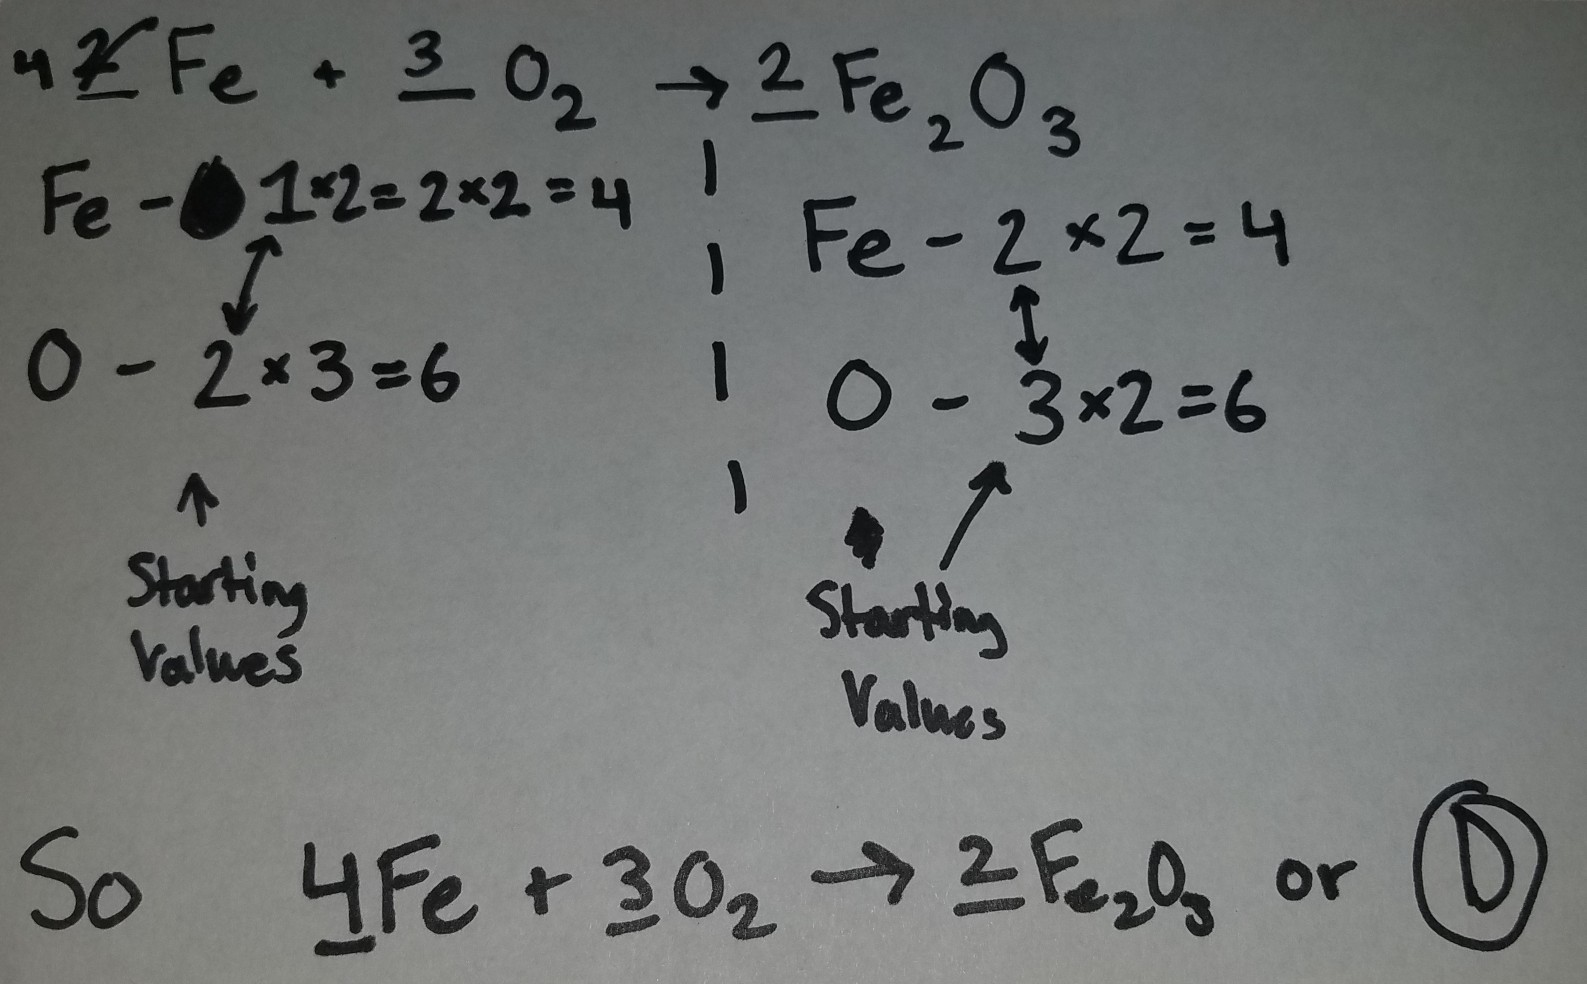 4 2 Fe + 3 O₂ → 2 Fe₂O₃
Fe - 1×2=2×2=4
Fe - 2×2=4
O - 2×3=6
O - 3×2=6
↑
Starting
Values
Starting
Values
So 4Fe + 3O₂ → 2Fe₂O₃ or D